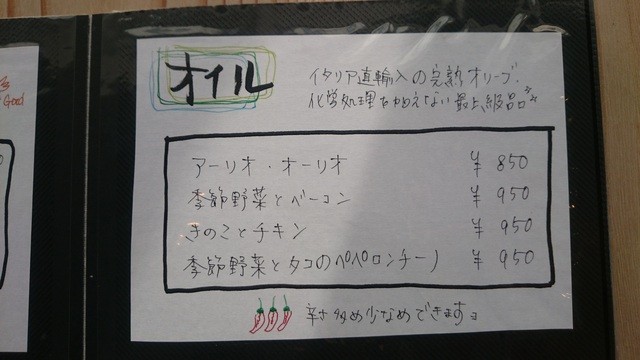 オイル
イタリア直輸入の完熟オリーブ.
化学処理を加えない最上級品
アーリオ・オーリオ ¥ 850
季節野菜とベーコン ¥ 950
きのことチキン ¥ 950
季節野菜とタコのペペロンチーノ ¥ 950
辛さ多め少なめできますョ
Good